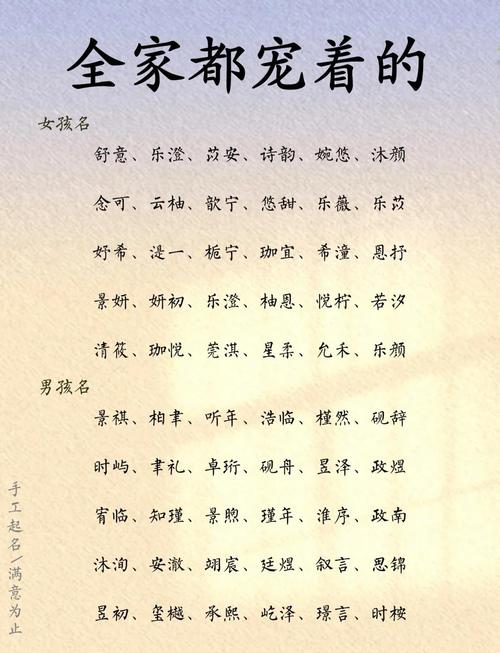 全家都宠着的
女孩名
舒意、乐澄、苡安、诗韵、婉悠、沐颜
念可、云柚、歆宁、悠甜、乐薇、乐苡
妤希、湜一、栀宁、珈宜、希潼、恩抒
景妍、妍初、乐澄、柚恩、悦柠、若汐
清筱、珈悦、莞淇、星柔、允禾、乐颜
男孩名
景祺、柏聿、听年、浩临、槿然、砚辞
时屿、聿礼、卓珩、砚舟、昱泽、政煜
宥临、知瑾、景煦、瑾年、淮序、政南
沐洵、安澈、翊宸、廷煜、叙言、思锦
昱初、玺樾、承熙、屹泽、璟言、时桉
手工起名/满意为止